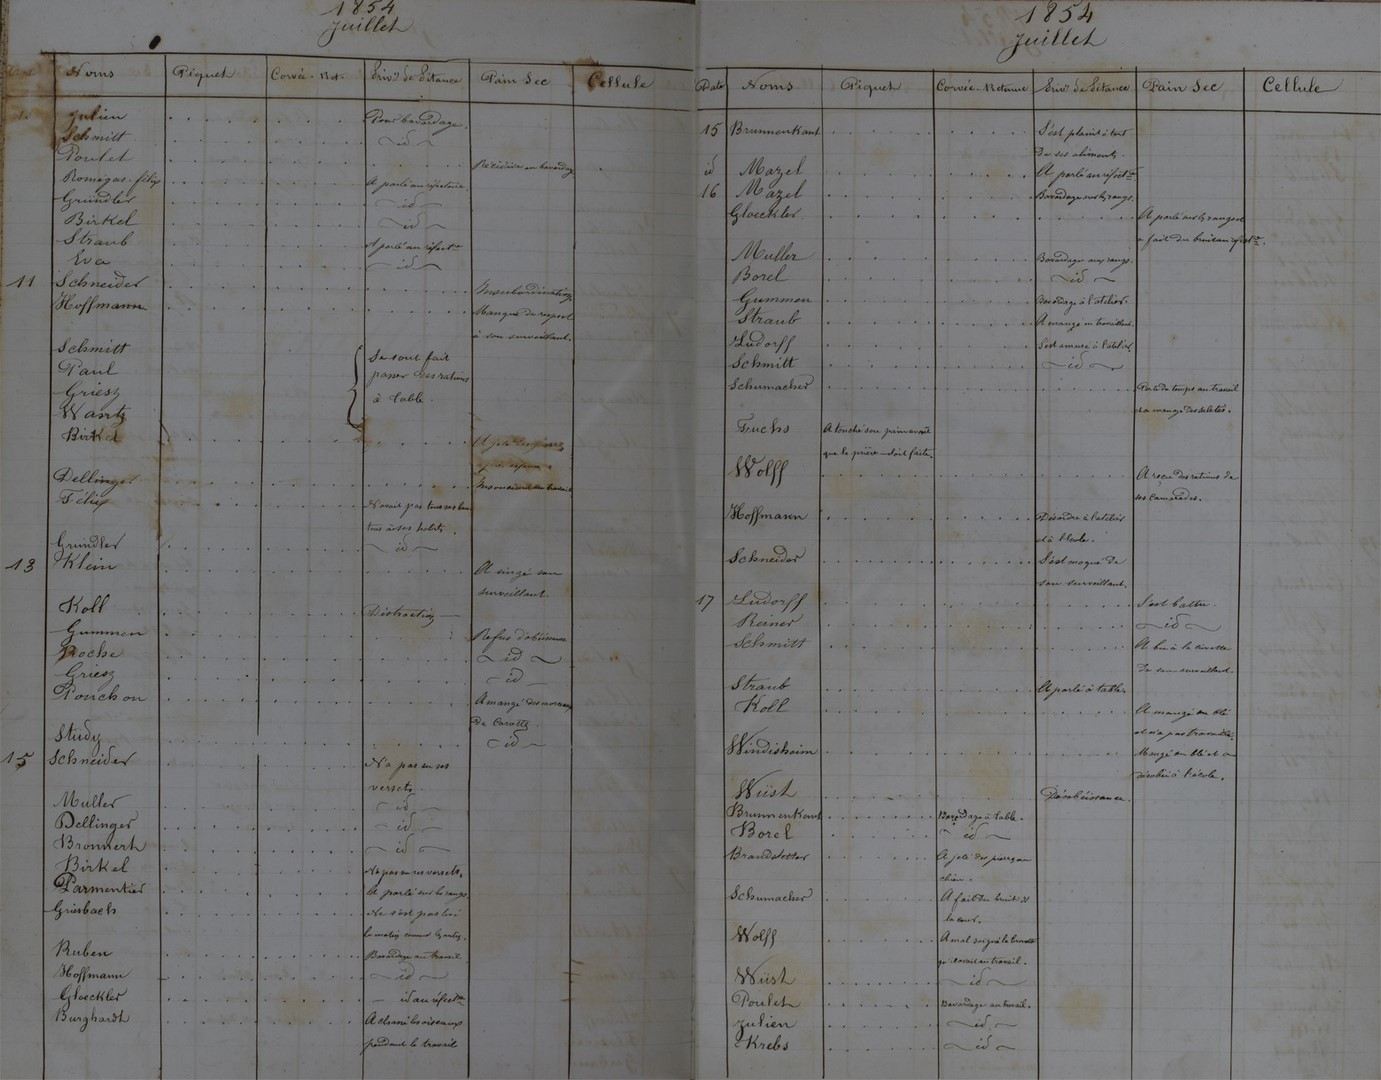 1854
Juillet
Noms Piquet Corvée-Ret. Priv.on de Pitance Pain Sec Cellule
Julien Pour bavardage.
Schmitt id
Poulet Récidive en bavardage
Romégas félix A parlé au réfectoire
Grundler id
Birkel id
Straub A parlé au réfectre
Eva id
11 Schneider Insubordination
Hoffmann Manque de respect
à son surveillant.
Schmitt Se sont fait
Paul passer des rations
Griesz à table.
Wantz
Birkel
Dellinger
Félix N'avait pas tous ses bou
tons à ses habits.
Grundler id
13 Klein A singé son
surveillant.
Koll Distraction
Gummen Refus d'obéissance
Roche id
Griesz id
Ponchon A mangé des morceaux
de Carotte
Study id
15 Schneider N'a pas su ses
versets.
Muller id
Dellinger id
Bronnert id
Birkel N'a pas su ses versets.
Parmentier A parlé sur les rangs
Griesbach Ne s'est pas levé
le matin comme
Ruben Bavardage au travail.
Hoffmann id
Gloeckler id au réfectre
Burghardt A chassé les oiseaux
pendant le travail
1854
Juillet
Date Noms Piquet Corvée-Retenue Priv.on de Pitance Pain Sec Cellule
15 Brunnenkant S'est plaint à tort
de ses aliments.
id Mazel A parlé au réfectre
16 Mazel Bavardage sur les rangs.
Gloeckler A parlé sur les rangs et
a fait du bruit au réfectre.
Muller Bavardage aux rangs.
Borel id
Gummen Bavardage à l'atelier.
Straub A mangé en travaillant.
Ludorff S'est amusé à l'atelier.
Schmitt id
Schumacher Perte de temps au travail
et a mangé des saletés.
Fuchs A touché son pain avant
que la prière soit faite.
Wolff A reçu des rations de
ses camarades.
Hoffmann Désordre à l'atelier
et à l'école.
Schneider S'est moqué de
son surveillant.
17 Ludorff S'est battu.
Reiner id
Schmitt A bu à la
de son surveillant.
Straub A parlé à table.
Koll A mangé du blé
et n'a pas travaillé.
Windisheim Mangé du blé et a
désobéi à l'école.
Wüst Désobéissance.
Brunnenkant Bavardage à table.
Borel id
Brandstetter A jeté des pierres au
chien.
Schumacher A fait du bruit à
la cour.
Wolff A mal soigné la
qu'il avait au travail.
Wüst id
Poulet Bavardage au travail.
Julien id
Krebs id